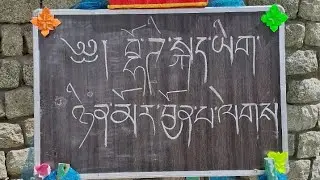 ༄༅། བྷོ་ཊི་སྐད་ཡིག
ཉེན་མོར་བྱོན་པ་ལེགས